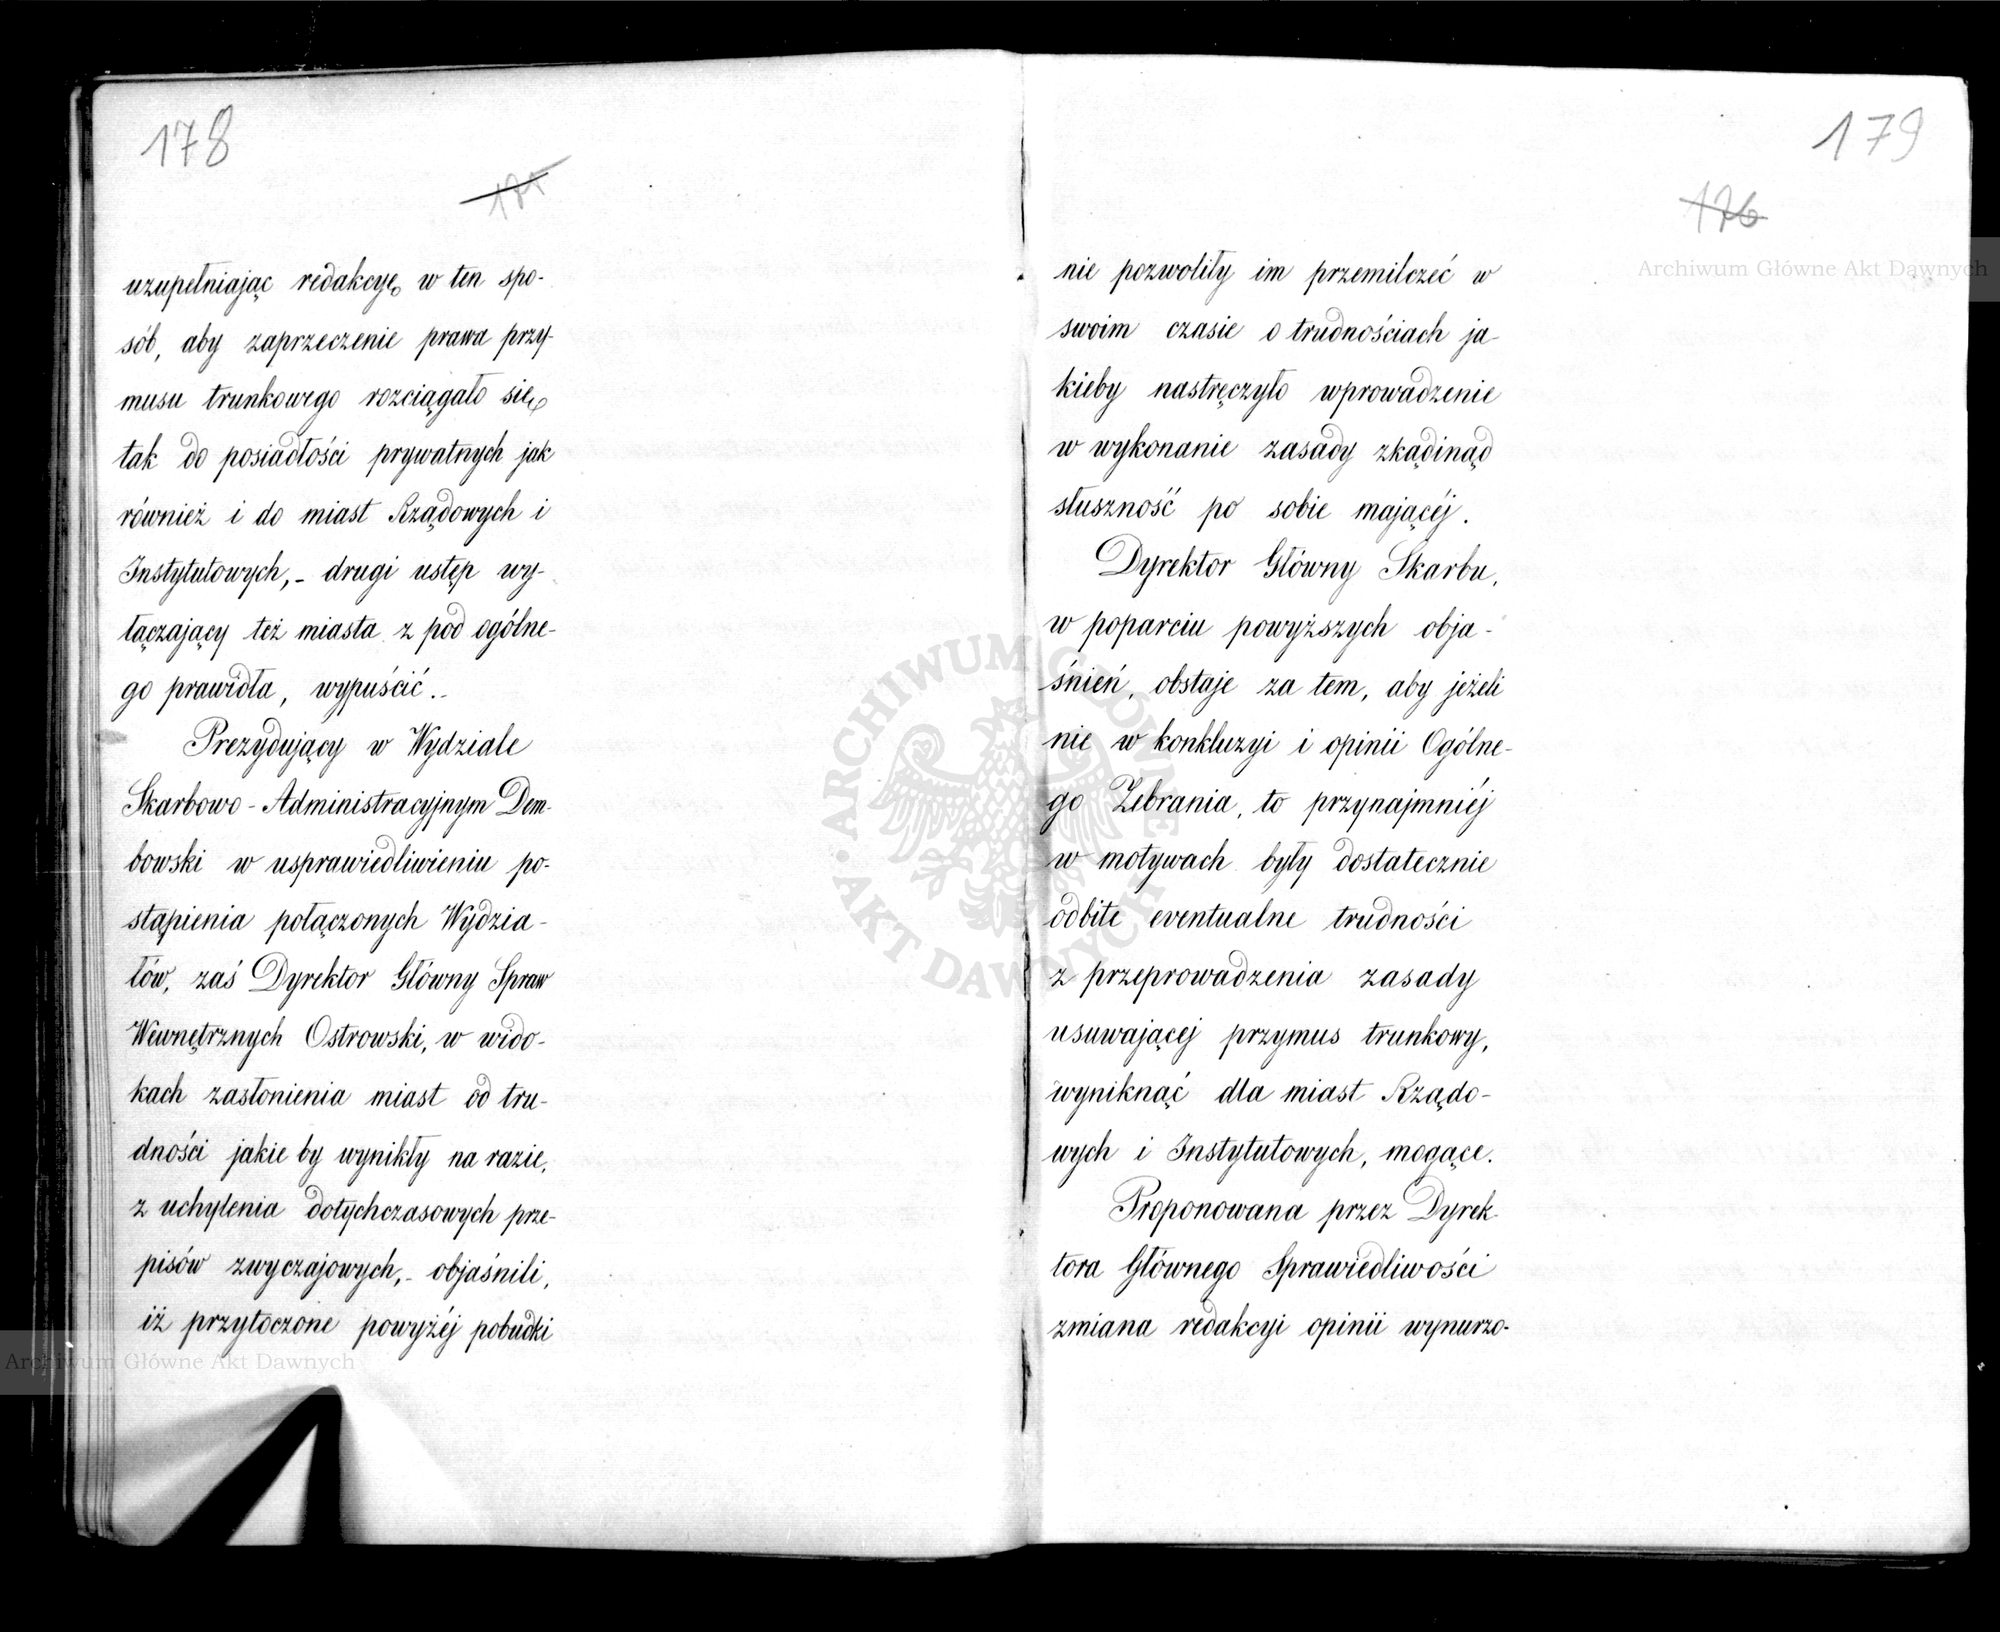 178
175
uzupełniając redakcyę w ten spo-
sób, aby zaprzeczenie prawa przy-
musu trunkowego rozciągało się
tak do posiadłości prywatnych jak
również i do miast Rządowych i
Instytutowych,- drugi ustęp wy-
łączający też miasta z pod ogólne-
go prawidła, wypuścić.-
Prezydujący w Wydziale
Skarbowo-Administracyjnym Dem-
bowski w usprawiedliwieniu po-
stąpienia połączonych Wydzia-
łów, zaś Dyrektor Główny Spraw
Wewnętrznych Ostrowski, w wido-
kach zasłonienia miast od tru-
dności jakie by wynikły na razie,
z uchylenia dotychczasowych prze-
pisów zwyczajowych,- objaśnili,
iż przytoczone powyżéj pobudki
179
176
nie pozwoliły im przemilczeć w
swoim czasie o trudnościach ja-
kieby nastręczyło wprowadzenie
w wykonanie zasady zkądinąd
słuszność po sobie mającéj.
Dyrektor Główny Skarbu,
w poparciu powyższych obja-
śnień, obstaje za tem, aby jeżeli
nie w konkluzyi i opinii Ogólne-
go Zebrania, to przynajmniéj
w motywach były dostatecznie
odbite eventualne trudności
z przeprowadzenia zasady
usuwającej przymus trunkowy,
wyniknąć dla miast Rządo-
wych i Instytutowych, mogące.
Proponowana przez Dyrek-
tora Głównego Sprawiedliwości
zmiana redakcyi opinii wynurzo-
Archiwum Główne Akt Dawnych
Archiwum Główne Akt Dawnych
ARCHIWUM GŁÓWNE AKT DAWNYCH